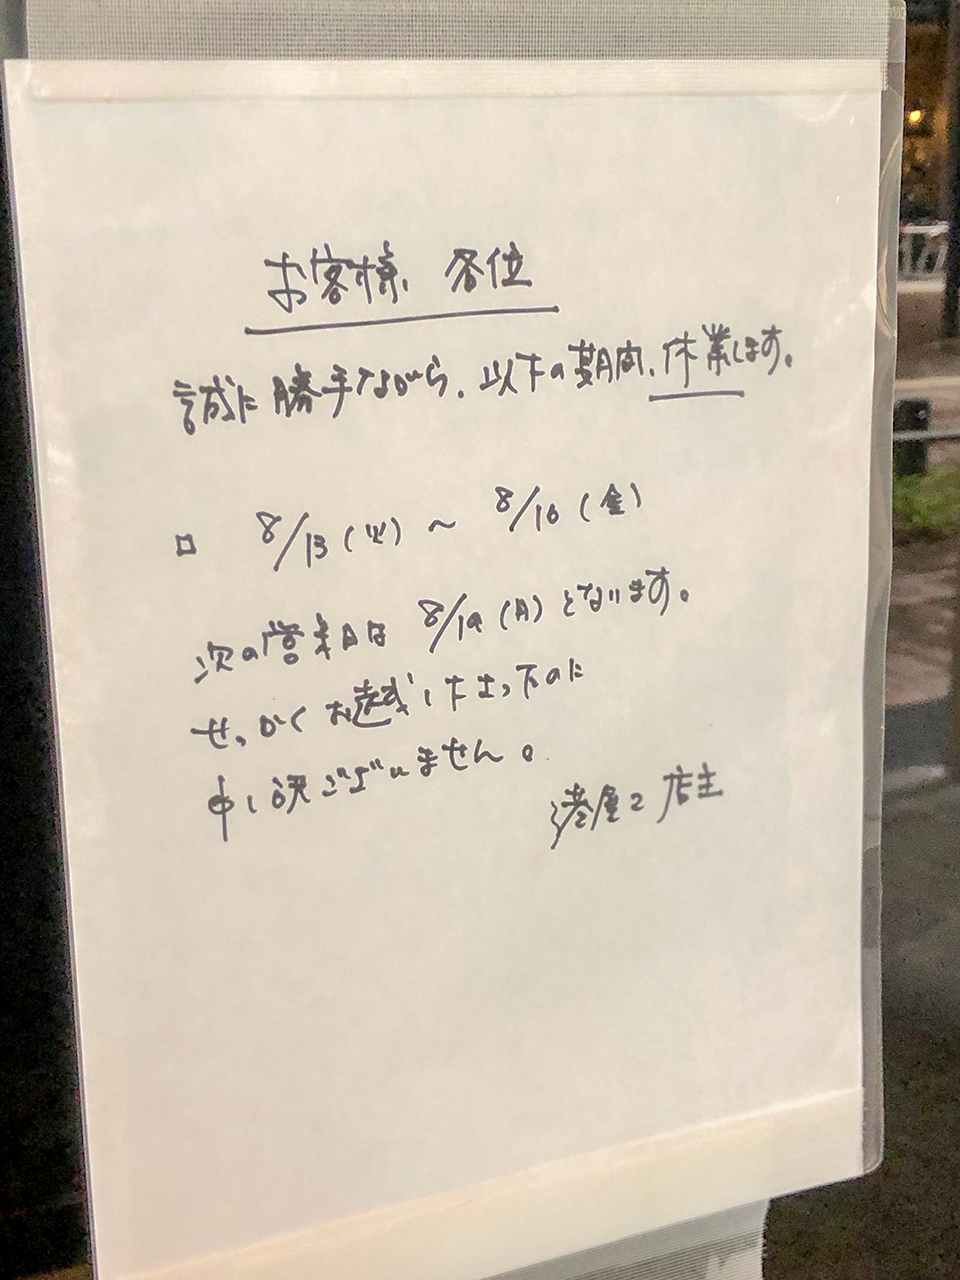 お客様 各位
誠に勝手ながら、以下の期間、休業します。
□ 8/13(火)〜 8/16(金)
次の営業日は 8/19(月)となります。
せっかくお越し下さったのに
申し訳ございません。
港屋2 店主